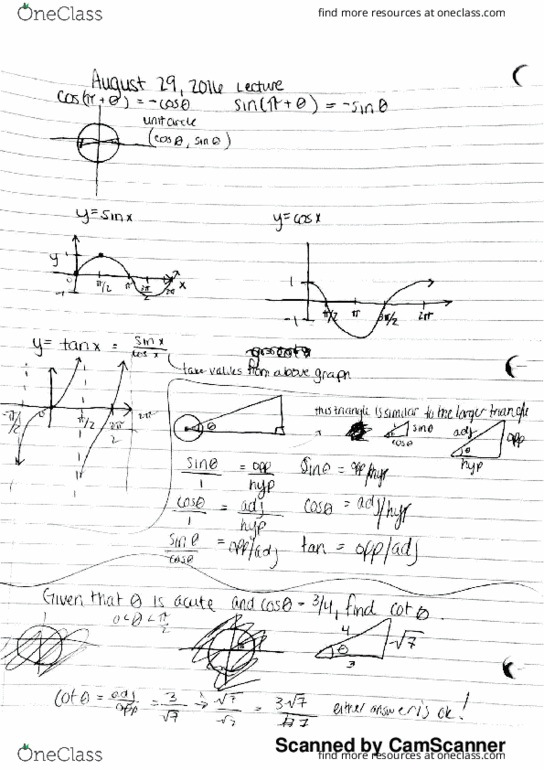 OneClass
find more resources at oneclass.com
August 29, 2016 Lecture
cos(π + θ) = -cosθ sin(π + θ) = -sinθ
unit circle
(cosθ, sinθ)
y=sinx y=cosx
y 1
0 π/2 π 2π x
-1
1
-1 π/2 π 3π/2 2π
y = tanx = sinx/cosx
take values from above graph
-π/2 0 π/2 2π
this triangle is similar to the larger triangle
θ sinθ cosθ adj opp θ hyp
sinθ/1 = opp/hyp sinθ = opp/hyp
cosθ/1 = adj/hyp cosθ = adj/hyp
sinθ/cosθ = opp/adj tan = opp/adj
Given that θ is acute and cosθ = 3/4, find cotθ.
0<θ<π/2
4 √7 θ 3
cotθ = adj/opp = 3/√7 → √7/√7 = 3√7/7 either answer is ok!
Scanned by CamScanner
OneClass
find more resources at oneclass.com